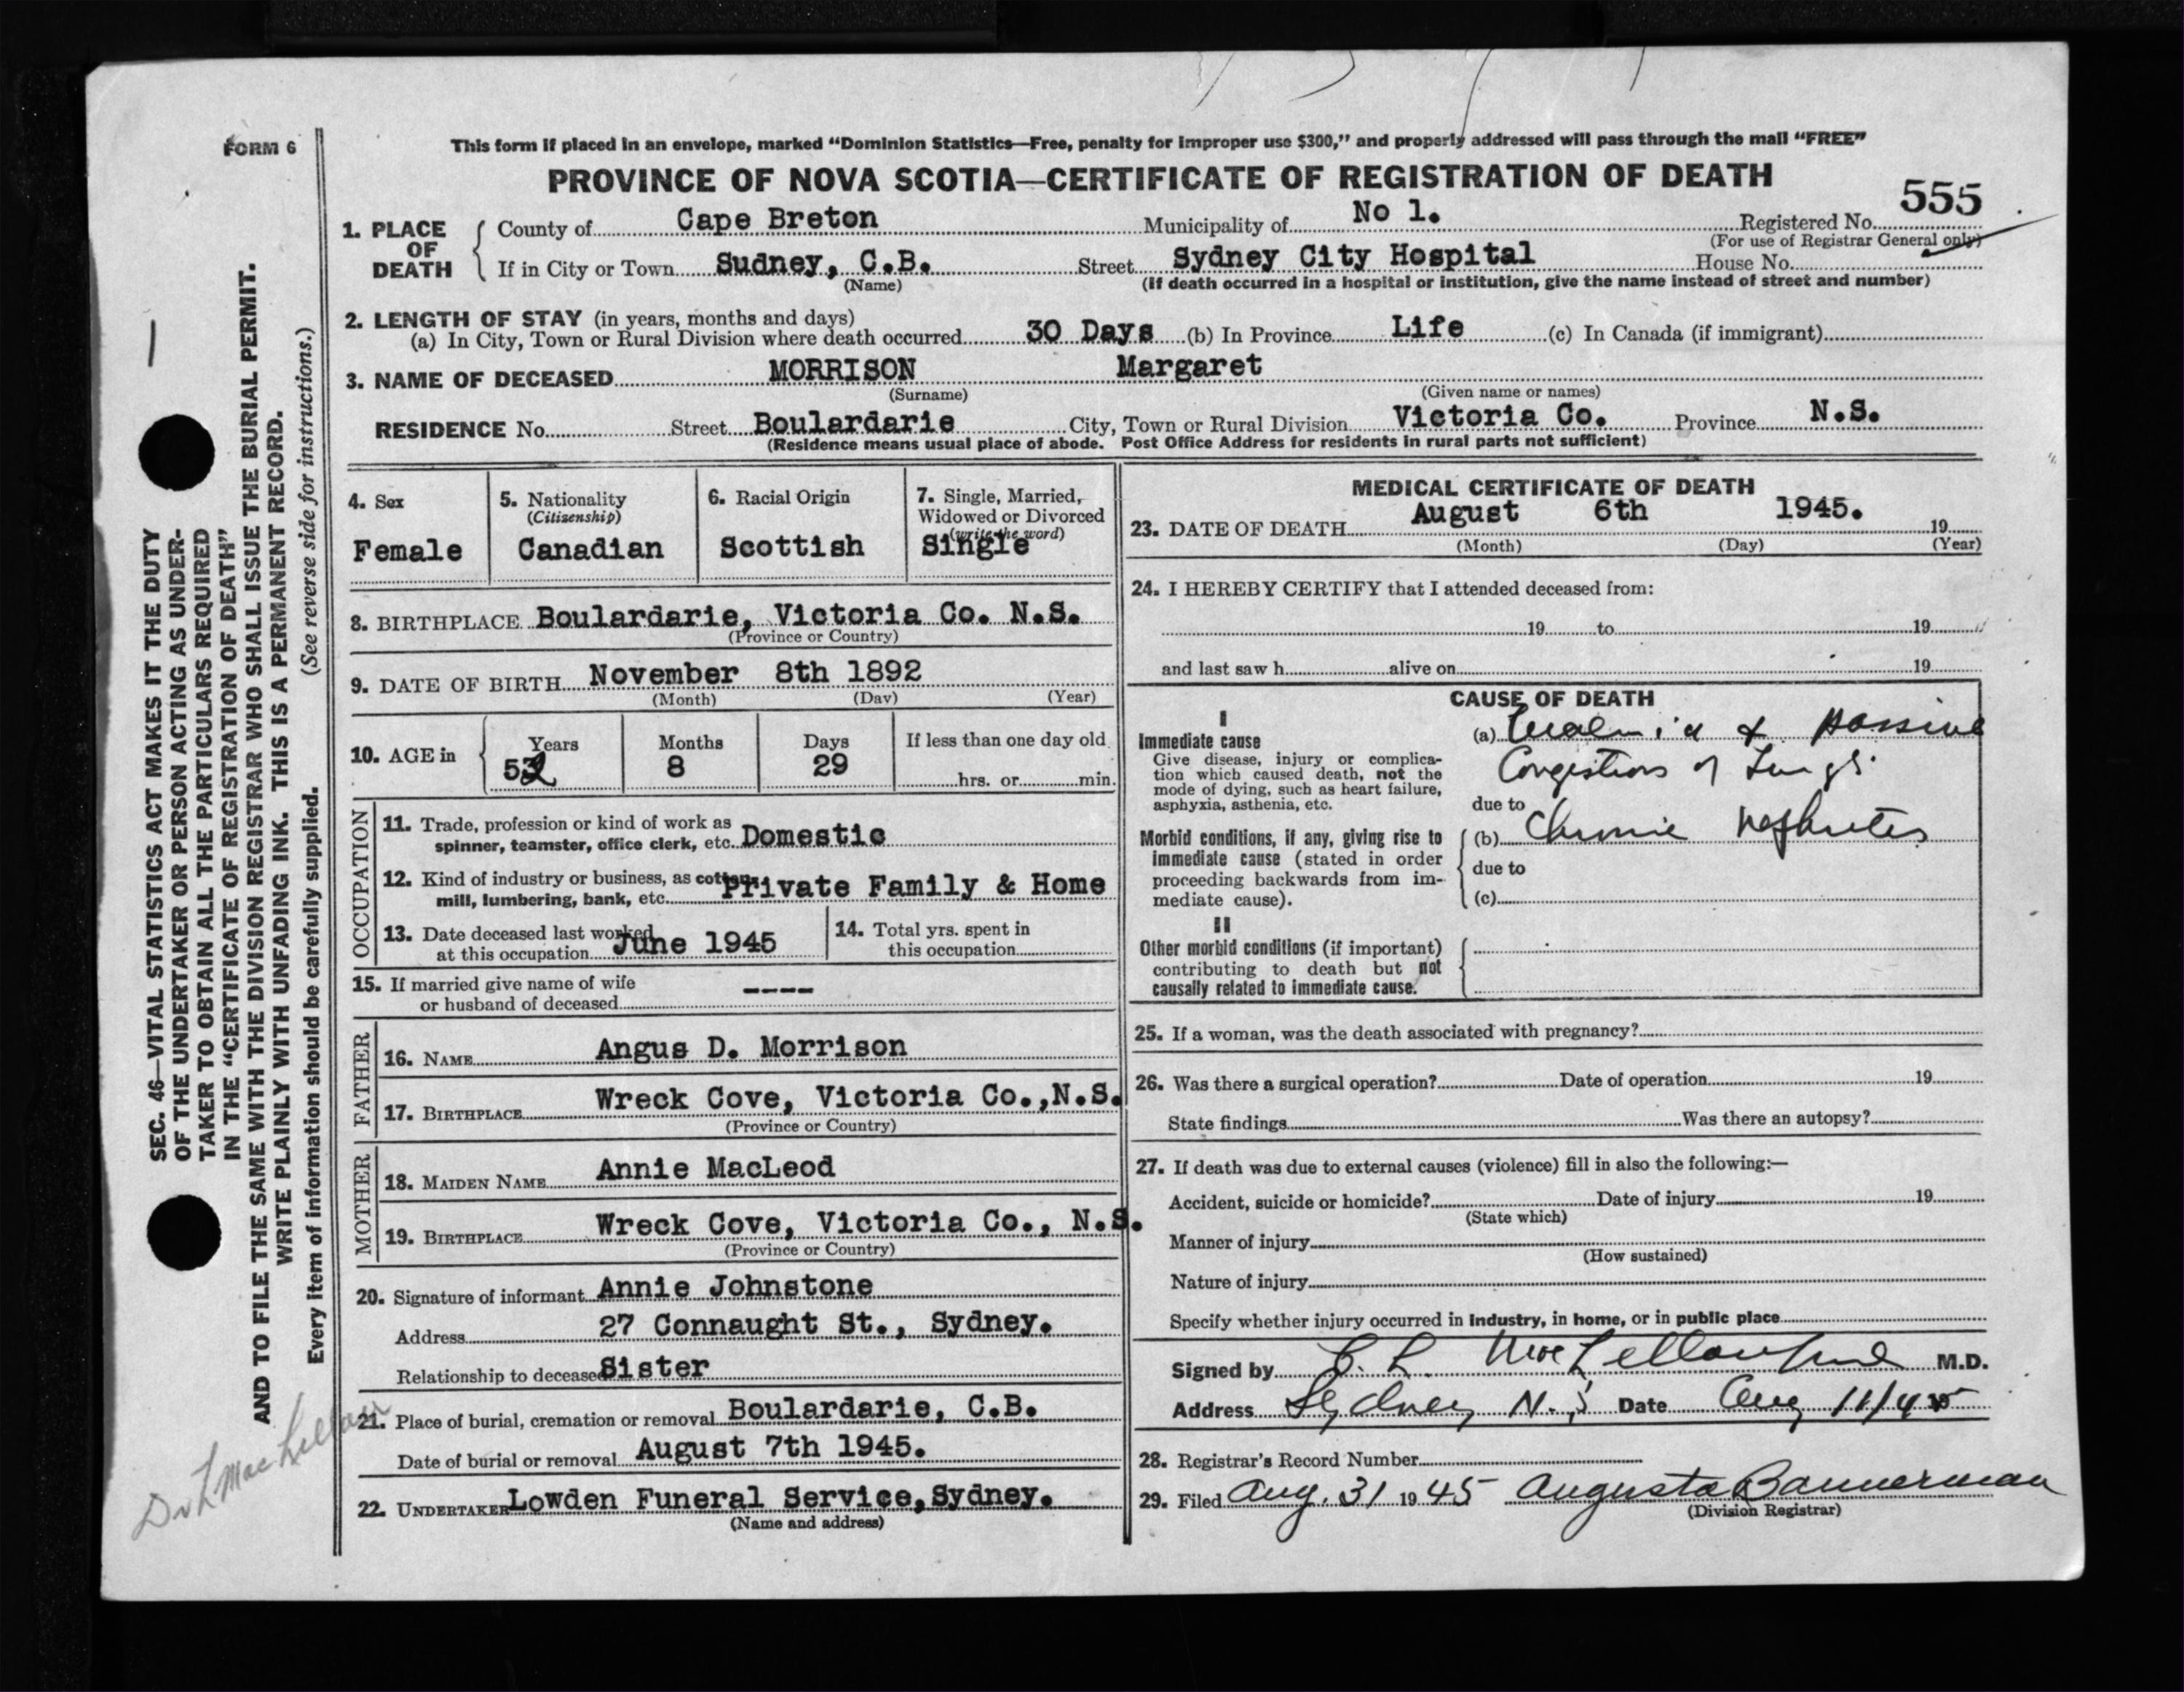 FORM 6
This form if placed in an envelope, marked "Dominion Statistics—Free, penalty for improper use $300," and properly addressed will pass through the mail "FREE"
PROVINCE OF NOVA SCOTIA—CERTIFICATE OF REGISTRATION OF DEATH
555
1. PLACE OF DEATH
County of Cape Breton Municipality of No 1. Registered No.
(For use of Registrar General only)
If in City or Town Sudney, C.B. Street Sydney City Hospital House No.
(Name) (If death occurred in a hospital or institution, give the name instead of street and number)
2. LENGTH OF STAY (in years, months and days)
(a) In City, Town or Rural Division where death occurred 30 Days (b) In Province Life (c) In Canada (if immigrant)
3. NAME OF DECEASED MORRISON Margaret
(Surname) (Given name or names)
RESIDENCE No. Street Boulardarie City, Town or Rural Division Victoria Co. Province N.S.
(Residence means usual place of abode. Post Office Address for residents in rural parts not sufficient)
4. Sex
Female
5. Nationality
(Citizenship)
Canadian
6. Racial Origin
Scottish
7. Single, Married,
Widowed or Divorced
(write the word)
Single
8. BIRTHPLACE Boulardarie, Victoria Co. N.S.
(Province or Country)
9. DATE OF BIRTH November 8th 1892
(Month) (Day) (Year)
10. AGE in
Years Months Days If less than one day old
52 8 29 hrs. or min.
OCCUPATION
11. Trade, profession or kind of work as
spinner, teamster, office clerk, etc. Domestic
12. Kind of industry or business, as cotton
mill, lumbering, bank, etc. Private Family & Home
13. Date deceased last worked
at this occupation June 1945
14. Total yrs. spent in
this occupation
15. If married give name of wife
or husband of deceased ----
FATHER
16. NAME Angus D. Morrison
17. BIRTHPLACE Wreck Cove, Victoria Co.,N.S.
(Province or Country)
MOTHER
18. MAIDEN NAME Annie MacLeod
19. BIRTHPLACE Wreck Cove, Victoria Co., N.S.
(Province or Country)
20. Signature of informant Annie Johnstone
Address 27 Connaught St., Sydney.
Relationship to deceased Sister
21. Place of burial, cremation or removal Boulardarie, C.B.
Date of burial or removal August 7th 1945.
22. UNDERTAKER Lowden Funeral Service,Sydney.
(Name and address)
MEDICAL CERTIFICATE OF DEATH
23. DATE OF DEATH August 6th 1945. 19
(Month) (Day) (Year)
24. I HEREBY CERTIFY that I attended deceased from:
19 to 19
and last saw h alive on 19
CAUSE OF DEATH
I
Immediate cause
Give disease, injury or complica-
tion which caused death, not the
mode of dying, such as heart failure,
asphyxia, asthenia, etc.
(a) & Passive
Congestion of Lungs.
due to
Morbid conditions, if any, giving rise to
immediate cause (stated in order
proceeding backwards from im-
mediate cause).
(b) Chronic Nephritis
due to
(c)
II
Other morbid conditions (if important)
contributing to death but not
causally related to immediate cause.
25. If a woman, was the death associated with pregnancy?
26. Was there a surgical operation? Date of operation 19
State findings Was there an autopsy?
27. If death was due to external causes (violence) fill in also the following:—
Accident, suicide or homicide? Date of injury 19
(State which)
Manner of injury
(How sustained)
Nature of injury
Specify whether injury occurred in industry, in home, or in public place
Signed by M.D.
Address Sydney N.S Date Aug 11/45
28. Registrar's Record Number
29. Filed Aug. 31 1945 Augusta Bannerman
(Division Registrar)
SEC. 46—VITAL STATISTICS ACT MAKES IT THE DUTY
OF THE UNDERTAKER OR PERSON ACTING AS UNDER-
TAKER TO OBTAIN ALL THE PARTICULARS REQUIRED
IN THE "CERTIFICATE OF REGISTRATION OF DEATH"
AND TO FILE THE SAME WITH THE DIVISION REGISTRAR WHO SHALL ISSUE THE BURIAL PERMIT.
WRITE PLAINLY WITH UNFADING INK. THIS IS A PERMANENT RECORD.
Every item of information should be carefully supplied. (See reverse side for instructions.)
Dr L MacLellan